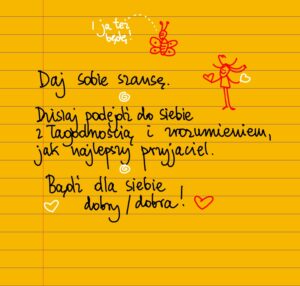 I ja też
będę
Daj sobie szansę.
Dzisiaj podejdź do siebie
z łagodnością i zrozumieniem,
jak najlepszy przyjaciel.
Bądź dla siebie
dobry/dobra!